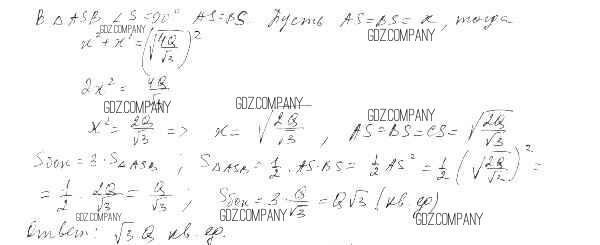 В △ASB ∠S=90° AS=BS. Пусть AS=BS=x, тогда
GDZ.COMPANY GDZ.COMPANY
x² + x² = (√(4Q/√3))²
2x² = 4Q/√3
GDZ.COMPANY GDZ.COMPANY GDZ.COMPANY
x² = 2Q/√3 => x = √(2Q/√3), AS=BS=CS=√(2Q/√3)
Sбок = 3·S△ASB ; S△ASB = 1/2·AS·BS = 1/2 AS² = 1/2 (√(2Q/√3))² =
= 1/2 · 2Q/√3 = Q/√3 ; Sбок = 3·Q/√3 = Q√3 (кв.ед)
GDZ.COMPANY GDZ.COMPANY GDZ.COMPANY
Ответ: √3 Q кв.ед.